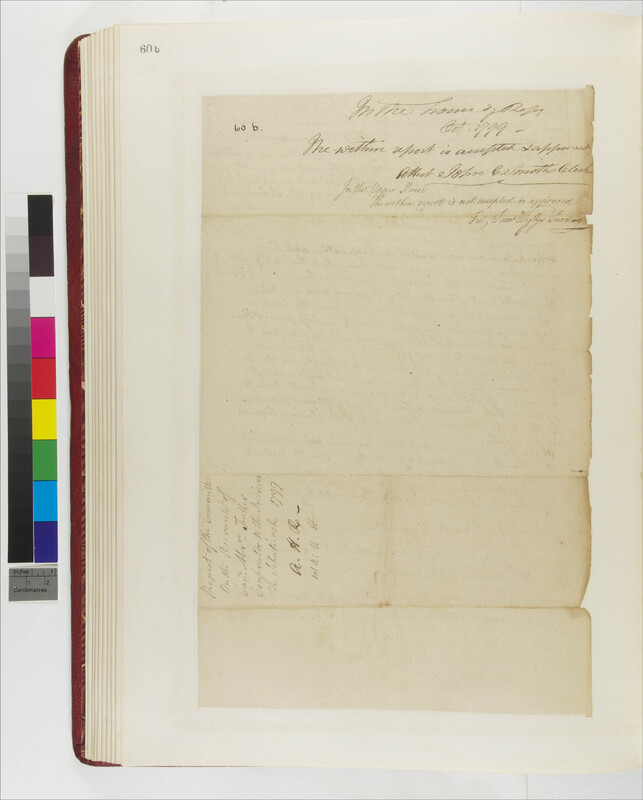 60 b
60 b.
In the house of Reps
Oct. 1799 -
The within report is accepted & approved
Attest John C. Smith Clerk
In the Upper House
The within report is not accepted or approved
Test, Saml Wyllys Secret
Report of the Committee
On the Accounts of
Overseer to the Indians
1799
A. H. R -
in U. H
Centimetres